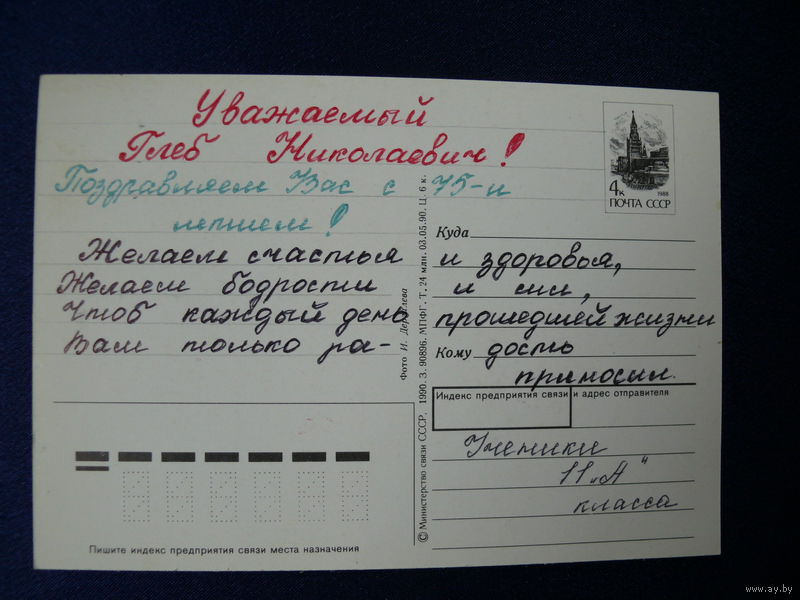 Уважаемый
Глеб Николаевич!
Поздравляем Вас с 75-и
летием!
Желаем счастья и здоровья,
Желаем бодрости и сил,
Чтоб каждый день прошедшей жизни
Вам только ра- дость
приносил.
Ученики
11 „А“
класса
4к
1988
ПОЧТА СССР
Куда
Кому
Индекс предприятия связи и адрес отправителя
Пишите индекс предприятия связи места назначения
© Министерство связи СССР. 1990. З. 90896. МПФГ. Т. 24 млн. 03.05.90. Ц. 6 к.
Фото И.
www.ay.by